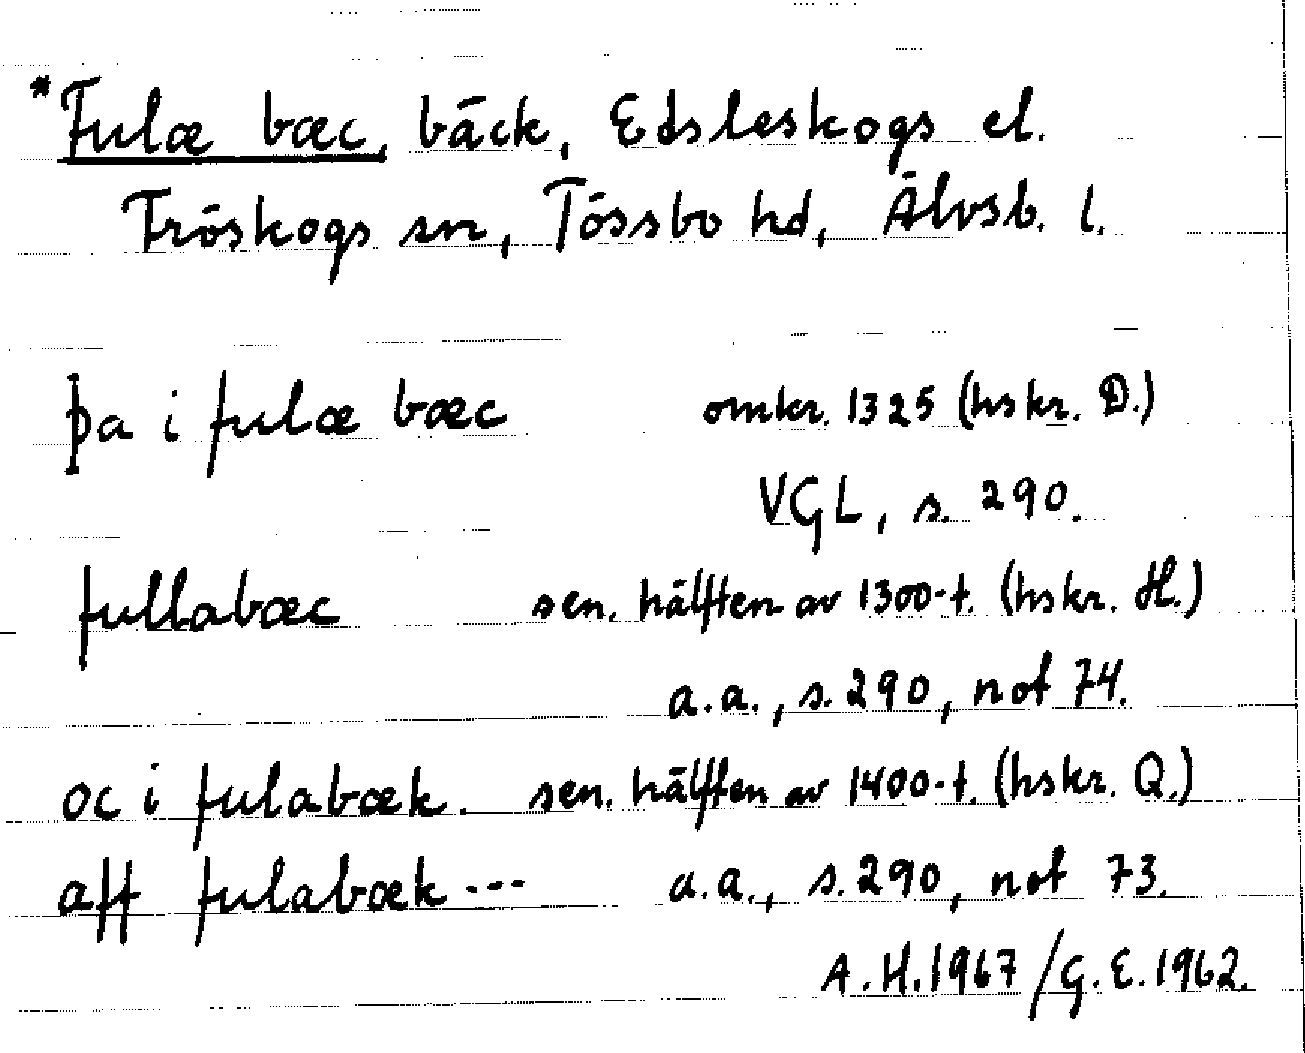 *Fulæ bæc, bäck, Edsleskogs el.
Fröskogs sn, Tössbo hd, Älvsb. l.
þa i fulæ bæc omkr. 1325 (hskr. D.)
VGL, s. 290.
fullabæc sen. hälften av 1300-t. (hskr. H.)
a.a., s. 290, not 74.
oc i fulabæk. sen. hälften av 1400-t. (hskr. Q.)
aff fulabæk --- a.a., s. 290, not 73.
A.H. 1967 / G.E. 1962.